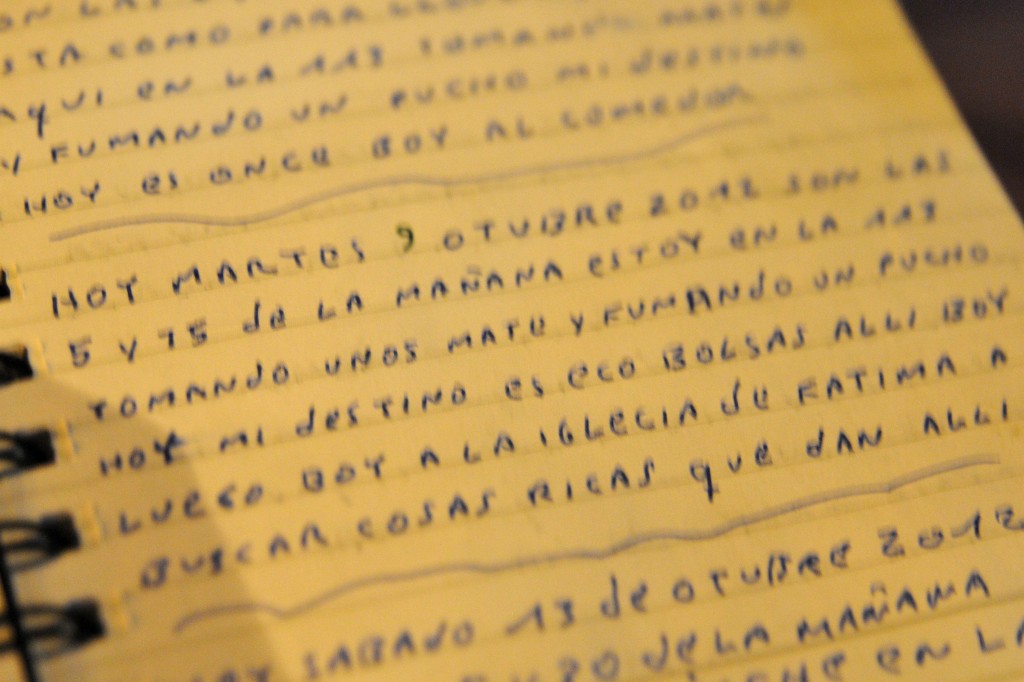 STA COMO PARA
AQUI EN LA 113 TOMANDO MATES
Y FUMANDO UN PUCHO MI DESTINO
HOY ES ONCE BOY AL COMEDOR
HOY MARTES 9 OTUBRE 2012 SON LAS
5 Y 15 de LA MAÑANA ESTOY EN LA 113
TOMANDO UNOS MATE Y FUMANDO UN PUCHO
HOY MI dESTINO ES ECO BOLSAS ALLI BOY
LUEGO BOY A LA IGLECIA de FATIMA A
BUSCAR COSAS RICAS QUE DAN ALLI
SABADO 13 de OTUBRE 2012
de LA MAÑAMA
EN LA